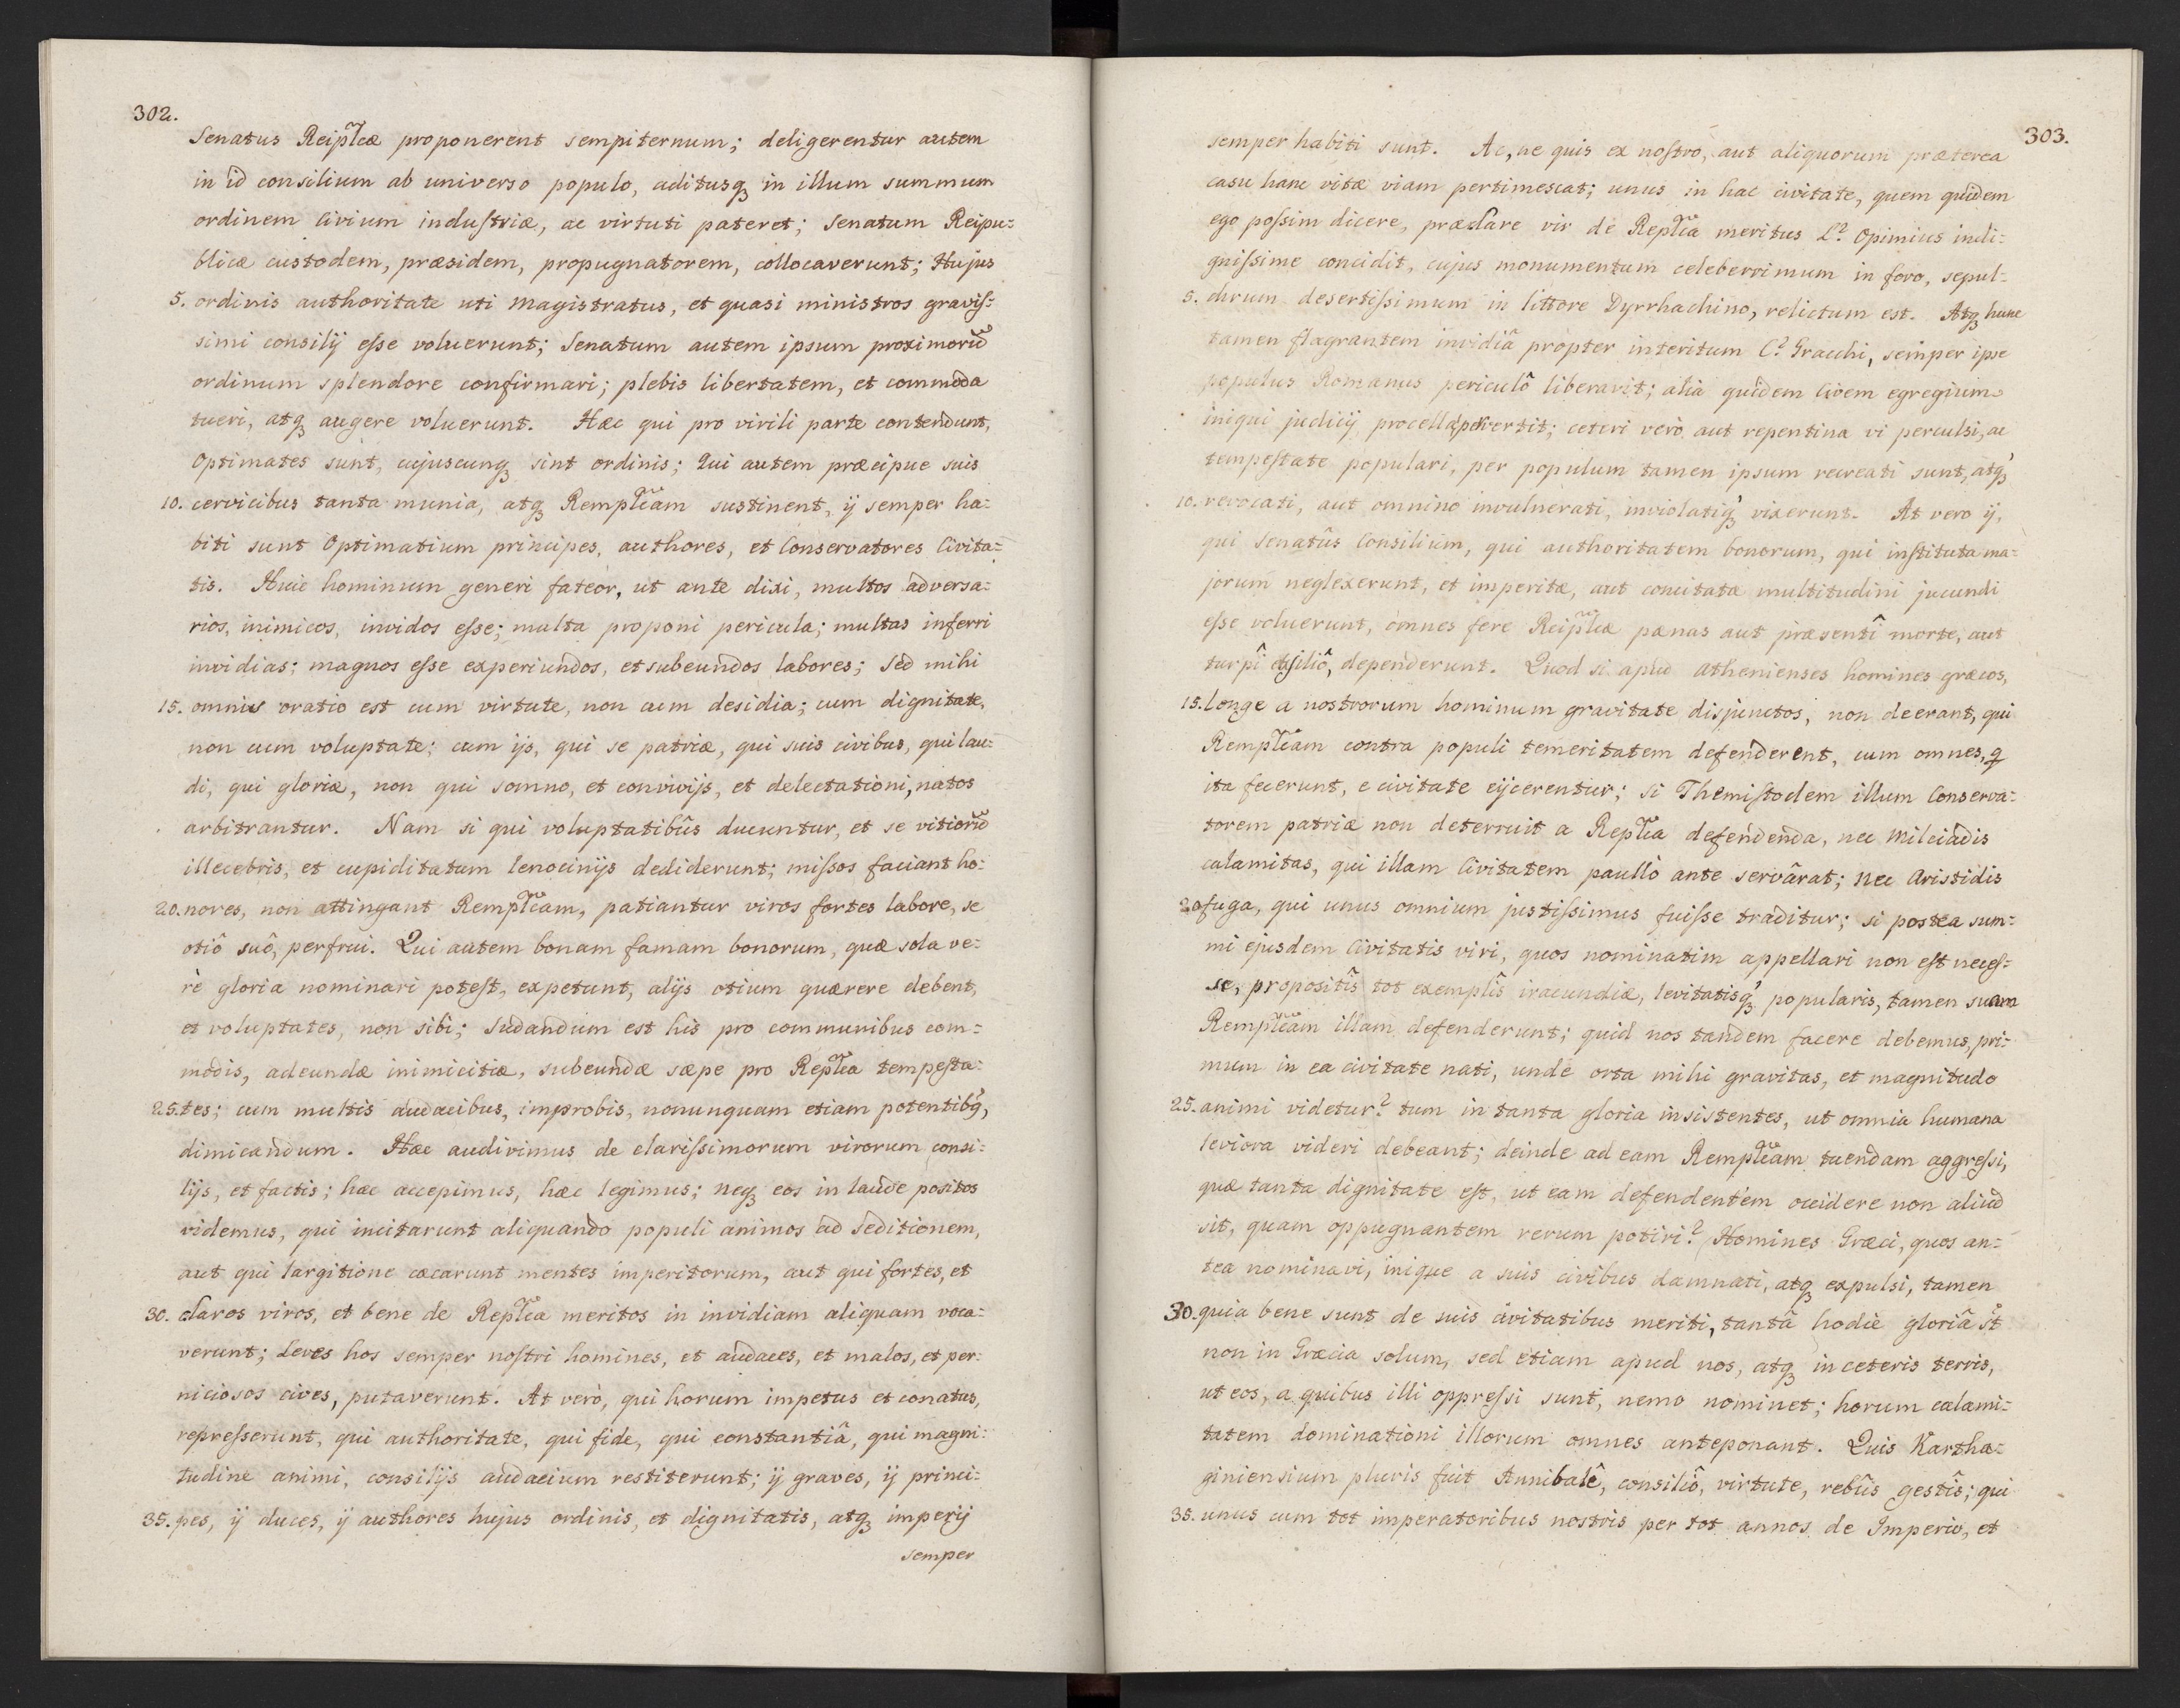 302.
Senatus Reiplcæ proponerent sempiternum; deligerentur autem
in id consilium ab universo populo, aditusq3 in illum summum
ordinem Civium industriæ, ac virtuti pateret; Senatum Reipu:
blicæ custodem, præsidem, propugnatorem, collocaverunt; Hujus
5. ordinis authoritate uti Magistratus, et quasi ministros gravis:
simi consilÿ esse voluerunt; Senatum autem ipsum proximorũ
ordinum splendore confirmari; plebis libertatem, et commoda
tueri, atq3 augere voluerunt. Hæc qui pro virili parte contendunt,
Optimates sunt, cujuscunq3 sint ordinis; Qui autem præcipue suis
10. cervicibus tanta munia, atq3 Remplcam sustinent, ÿ semper ha:
biti sunt Optimatium principes, authores, et Conservatores Civita:
tis. Huic hominum generi fateor, ut ante dixi, multos adversa:
rios, inimicos, invidos esse; multa proponi pericula; multas inferri
invidias; magnos esse experiundos, et subeundos labores; Sed mihi
15. omnis oratio est cum virtute, non cum desidia; cum dignitate,
non cum voluptate; cum ijs, qui se patriæ, qui suis civibus, qui lau:
di, qui gloriæ, non qui somno, et convivijs, et delectationi, natos
arbitrantur. Nam si qui voluptatibûs ducuntur, et se vitiorũ
illecebris, et cupiditatum lenocinijs dediderunt; missos faciant ho:
20. nores, non attingant Remplcam, patiantur viros fortes labore, se
otiô suô, perfrui. Qui autem bonam famam bonorum, quæ sola ve:
rè gloria nominari potest, expetunt, alijs otium quærere debent,
et voluptates, non sibi; Sudandum est his pro communibus com:
modis, adeundæ inimicitiæ, subeundæ sæpe pro Replca tempesta:
25. tes; cum multis audacibus, improbis, nonunquam etiam potentibq3,
dimicandum. Hæc audivimus de clarissimorum virorum consi:
lijs, et factis; hæc accepimus, hæc legimus; neq3 eos in laude positos
videmus, qui incitarunt aliquando populi animos ad Seditionem,
aut qui largitione cæcarunt mentes imperitorum, aut qui fortes, et
30. claros viros, et bene de Replca meritos in invidiam aliquam voca:
verunt; Leves hos semper nostri homines, et audaces, et malos, et per:
niciosos cives, putaverunt. At verò, qui horum impetus et conatus,
represserunt, qui authoritate, qui fide, qui constantiâ, qui magni:
tudine animi, consilijs audacium restiterunt; ÿ graves, ÿ princi:
35. pes, ÿ duces, ÿ authores hujus ordinis, et dignitatis, atq3 imperÿ
semper
303.
semper habiti sunt. Ac, ne quis ex nostro, aut aliquorum præterea
casu hanc vitæ viam pertimescat; unus in hac civitate, quem quidem
ego possim dicere, præclare vir de Replca meritus L.? Opimius indi:
gnissime concidit, cujus monumentum celeberrimum in foro, sepul:
5. chrum desertissimum in littore Dyrrhachino, relictum est. Atq3 hunc
tamen flagrantem invidiâ propter interitum C.? Gracchi, semper ipse
populus Romanus periculô liberavit; alia quidem Civem egregium
iniqui judicÿ procella pervertit; ceteri verò aut repentina vi perculsi, ac
tempestate populari, per populum tamen ipsum recreati sunt, atq3
10. revocati, aut omnino invulnerati, inviolatiq3 vixerunt. At vero ÿ,
qui Senatûs Consilium, qui authoritatem bonorum, qui instituta ma:
jorum neglexerunt, et imperitæ, aut concitatæ multitudini jucundi
esse voluerunt, omnes fere Reiplcæ pænas aut præsentî morte, aut
turpî exsiliô, dependerunt. Quod si apud Athenienses homines græcos,
15. longe a nostrorum hominum gravitate disjunctos, non deerant, qui
Remplcam contra populi temeritatem defenderent, cum omnes, q
ita fecerunt, e civitate eijcerentur; si Themistoclem illum Conserva:
torem patriæ non deterruit a Replca defendenda, nec Milciadis
calamitas, qui illam Civitatem paullò ante servârat; nec Aristidis
20. fuga, qui unus omnium justissimus fuisse traditur; si postea sum:
mi ejusdem Civitatis viri, quos nominatim appellari non est neces:
se, propositîs tot exemplîs iracundiæ, levitatisq3 popularis, tamen suam
Remplcam illam defenderunt; quid nos tandem facere debemus, pri:
mum in ea civitate nati, unde orta mihi gravitas, et magnitudo
25. animi videtur? tum in tanta gloria insistentes, ut omnia humana
leviora videri debeant; deinde ad eam Remplcam tuendam aggressi,
quæ tanta dignitate est, ut eam defendentem occidere non aliud
sit, quam oppugnantem rerum potiri? Homines Græci, quos an:
tea nominavi, inique a suis civibus damnati, atq3 expulsi, tamen
30. quia bene sunt de suis civitatibus meriti, tantâ hodie gloriâ st̃
non in Græcia solum, sed etiam apud nos, atq3 in ceteris terris,
ut eos, a quibus illi oppressi sunt, nemo nominet; horum calami:
tatem dominationi illorum omnes anteponant. Quis Kartha:
giniensium pluris fuit Annibalê, consiliô, virtute, rebûs gestîs; qui
35. unus cum tot imperatoribus nostris per tot annos de Imperio, et